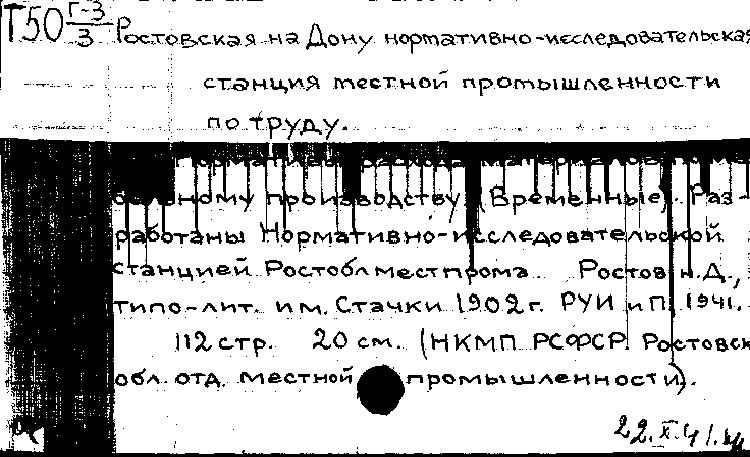 Т50 Г-3/3 Ростовская на Дону нормативно-исследовательская
станция местной промышленности
по труду.
Нормативы расхода материалов по ме-
бельному производству (Временные). Раз-
работаны Нормативно-исследовательской
станцией Ростоблместпрома. Ростов н.Д.,
типо-лит. им. Стачки 1902 г. РУИ и П, 1941.
112 стр. 20 см. (НКМП РСФСР. Ростовск
обл. отд. местной промышленности).
22.X.41.